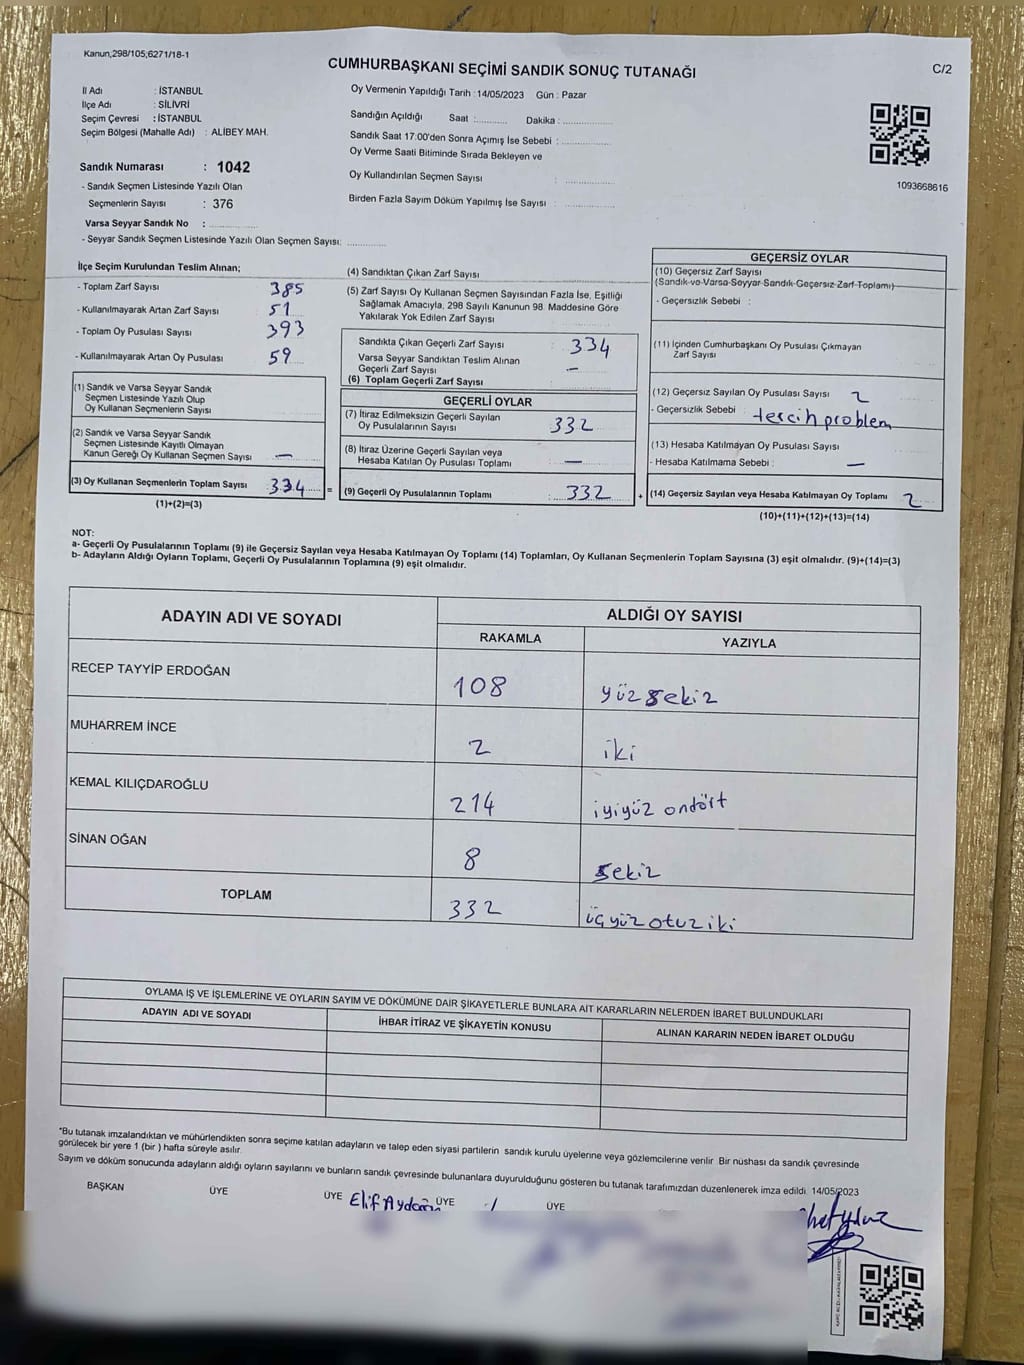 Kanun,298/105;6271/18-1
CUMHURBAŞKANI SEÇİMİ SANDIK SONUÇ TUTANAĞI
C/2
İl Adı : İSTANBUL
İlçe Adı : SİLİVRİ
Seçim Çevresi : İSTANBUL
Seçim Bölgesi (Mahalle Adı) : ALİBEY MAH.
Oy Vermenin Yapıldığı Tarih : 14/05/2023 Gün : Pazar
Sandığın Açıldığı Saat :........... Dakika :................
Sandık Saat 17:00'den Sonra Açımış İse Sebebi :................
Oy Verme Saati Bitiminde Sırada Bekleyen ve
Oy Kullandırılan Seçmen Sayısı : ................
Birden Fazla Sayım Döküm Yapılmış İse Sayısı : ................
1093668616
Sandık Numarası : 1042
- Sandık Seçmen Listesinde Yazılı Olan
Seçmenlerin Sayısı : 376
Varsa Seyyar Sandık No :................
- Seyyar Sandık Seçmen Listesinde Yazılı Olan Seçmen Sayısı: ............
İlçe Seçim Kurulundan Teslim Alınan;
- Toplam Zarf Sayısı 385
- Kullanılmayarak Artan Zarf Sayısı 51
- Toplam Oy Pusulası Sayısı 393
- Kullanılmayarak Artan Oy Pusulası 59
(1) Sandık ve Varsa Seyyar Sandık
Seçmen Listesinde Yazılı Olup
Oy Kullanan Seçmenlerin Sayısı
(2) Sandık ve Varsa Seyyar Sandık
Seçmen Listesinde Kayıtlı Olmayan
Kanun Gereği Oy Kullanan Seçmen Sayısı —
(3) Oy Kullanan Seçmenlerin Toplam Sayısı : 334 =
(1)+(2)=(3)
(4) Sandıktan Çıkan Zarf Sayısı
(5) Zarf Sayısı Oy Kullanan Seçmen Sayısından Fazla İse, Eşitliği
Sağlamak Amacıyla, 298 Sayılı Kanunun 98. Maddesine Göre
Yakılarak Yok Edilen Zarf Sayısı
Sandıkta Çıkan Geçerli Zarf Sayısı 334
Varsa Seyyar Sandıktan Teslim Alınan
Geçerli Zarf Sayısı —
(6) Toplam Geçerli Zarf Sayısı
GEÇERLİ OYLAR
(7) İtiraz Edilmeksizin Geçerli Sayılan
Oy Pusulalarının Sayısı 332
(8) İtiraz Üzerine Geçerli Sayılan veya
Hesaba Katılan Oy Pusulası Toplamı —
(9) Geçerli Oy Pusulalarının Toplamı : 332 +
GEÇERSİZ OYLAR
(10) Geçersiz Zarf Sayısı
(Sandık ve Varsa Seyyar Sandık Geçersiz Zarf Toplamı)
- Geçersizlik Sebebi :
(11) İçinden Cumhurbaşkanı Oy Pusulası Çıkmayan
Zarf Sayısı
(12) Geçersiz Sayılan Oy Pusulası Sayısı 2
- Geçersizlik Sebebi : tercih problem
(13) Hesaba Katılmayan Oy Pusulası Sayısı
- Hesaba Katılmama Sebebi : —
(14) Geçersiz Sayılan veya Hesaba Katılmayan Oy Toplamı 2
(10)+(11)+(12)+(13)=(14)
NOT:
a- Geçerli Oy Pusulalarının Toplamı (9) ile Geçersiz Sayılan veya Hesaba Katılmayan Oy Toplamı (14) Toplamları, Oy Kullanan Seçmenlerin Toplam Sayısına (3) eşit olmalıdır. (9)+(14)=(3)
b- Adayların Aldığı Oyların Toplamı, Geçerli Oy Pusulalarının Toplamına (9) eşit olmalıdır.
ADAYIN ADI VE SOYADI ALDIĞI OY SAYISI
RAKAMLA YAZIYLA
RECEP TAYYİP ERDOĞAN 108 yüzsekiz
MUHARREM İNCE 2 iki
KEMAL KILIÇDAROĞLU 214 iyiyüz ondört
SİNAN OĞAN 8 sekiz
TOPLAM 332 üçyüz otuz iki
OYLAMA İŞ VE İŞLEMLERİNE VE OYLARIN SAYIM VE DÖKÜMÜNE DAİR ŞİKAYETLERLE BUNLARA AİT KARARLARIN NELERDEN İBARET BULUNDUKLARI
ADAYIN ADI VE SOYADI İHBAR İTİRAZ VE ŞİKAYETİN KONUSU ALINAN KARARIN NEDEN İBARET OLDUĞU
*Bu tutanak imzalandıktan ve mühürlendikten sonra seçime katılan adayların ve talep eden siyasi partilerin sandık kurulu üyelerine veya gözlemcilerine verilir. Bir nüshası da sandık çevresinde
görülecek bir yere 1 (bir ) hafta süreyle asılır.
Sayım ve döküm sonucunda adayların aldığı oyların sayılarını ve bunların sandık çevresinde bulunanlara duyurulduğunu gösteren bu tutanak tarafımızdan düzenlenerek imza edildi. 14/05/2023
BAŞKAN ÜYE ÜYE Elif Aydoğ ÜYE ÜYE